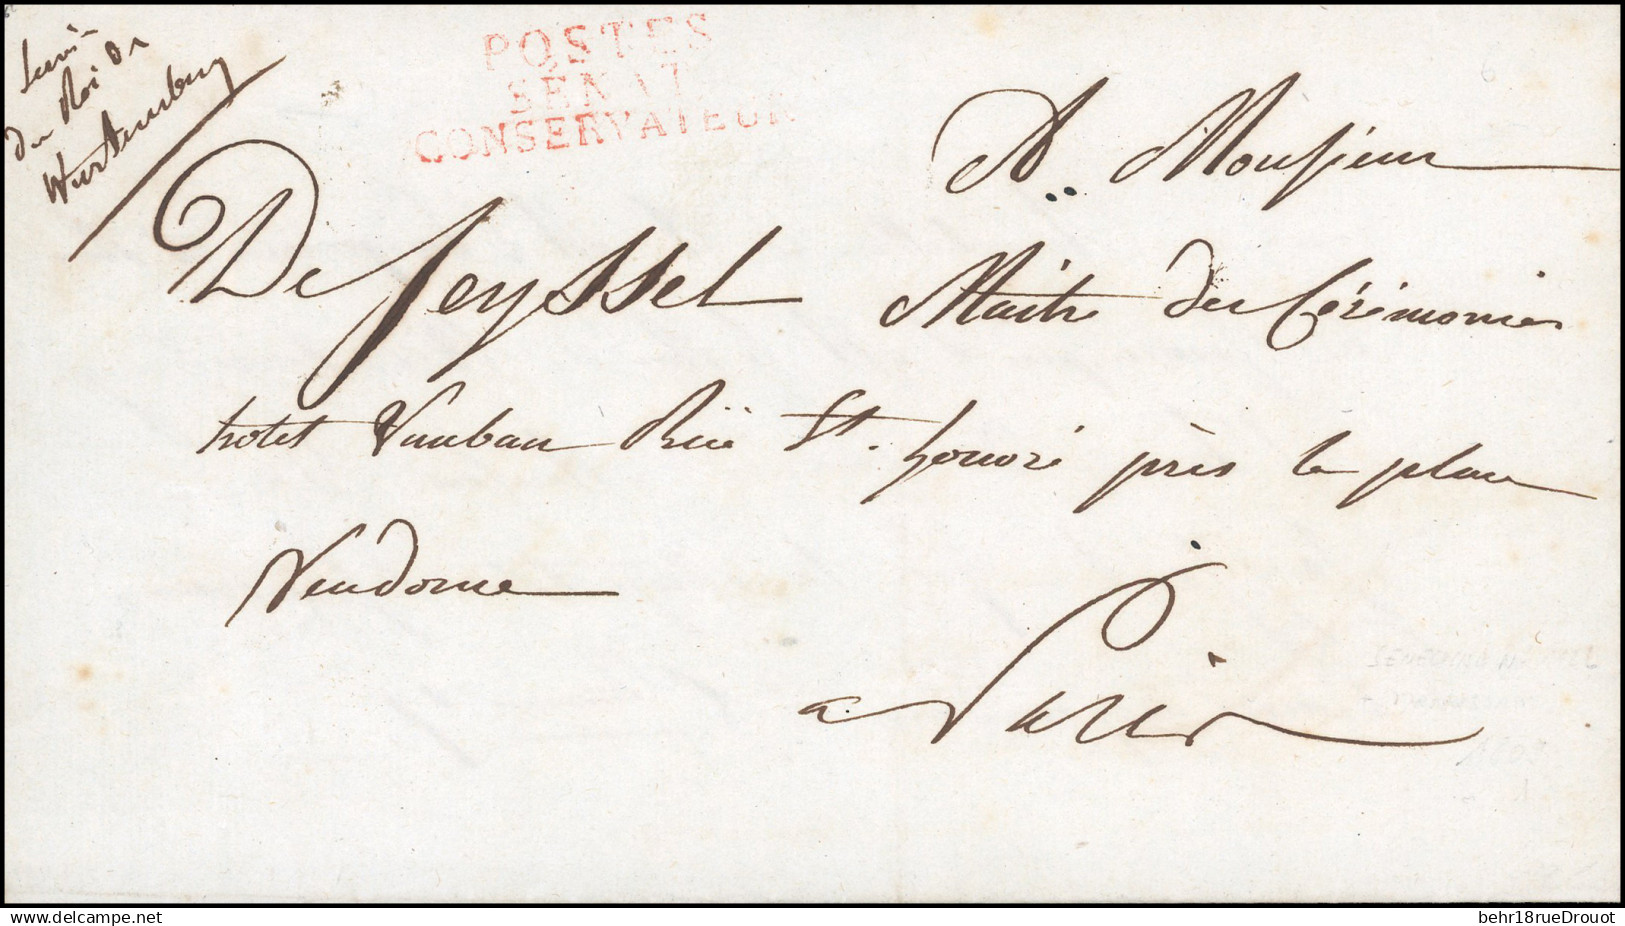 Du Roi De
Wurtemburg
POSTES
SÉNAT
CONSERVATEUR
A Monsieur
De Seyssel Maitre des Cérémonies
hotel Vauban Rüe St. honoré près la place
Vendome
a Paris
1809
behr18rueDrouot